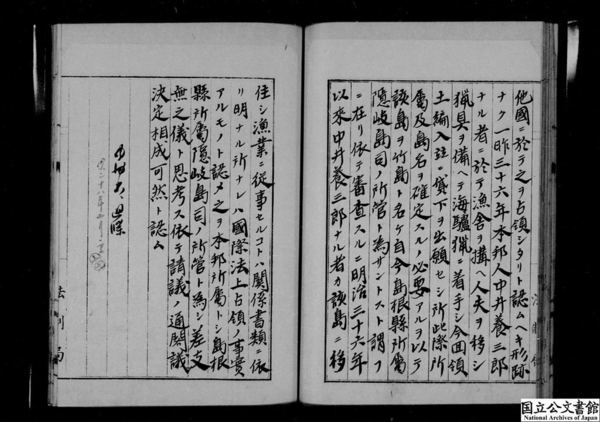 他國ニ於テ之ヲ占領シタリト認ムヘキ形跡
ナク一昨三十六年本邦人中井養三郎
ナル者ニ於テ漁舎ヲ構ヘ人夫ヲ移シ
獵具ヲ備ヘテ海驢獵ニ着手シ今回領
土編入並ニ貸下ヲ出願セシ所此際所
屬及島名ヲ確定スルノ必要アルヲ以テ
該島ヲ竹島ト名ケ自今島根縣所屬
隠岐島司ノ所管ト為サントスト謂フ
ニ在リ依テ審査スルニ明治三十六年
以来中井養三郎ナル者カ該島ニ移
住シ漁業ニ従事セルコトハ關係書類ニ依
リ明ナル所ナレハ國際法上占領ノ事實
アルモノト認メ之ヲ本邦所屬トシ島根
縣所屬隠岐島司ノ所管ト為シ差支
無之儀ト思考ス依テ請議ノ通閣議
決定相成可然ト認ム
法制局
国立公文書館
National Archives of Japan